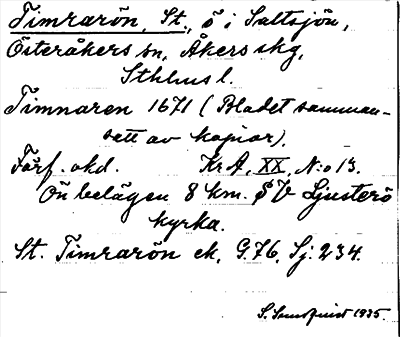 Timrarön, St., ö i Saltsjön,
Österåkers sn, Åkers skg,
Sthlms l.
Timnaren 1671 (Bladet samman-
satt av kopior).
Förf. okd. KrA, XX, N:o 13.
Ön belägen 8 km. S V Ljusterö
kyrka.
St. Timrarön ek. G.76, Sj: 234.
S. Sundquist 1935.